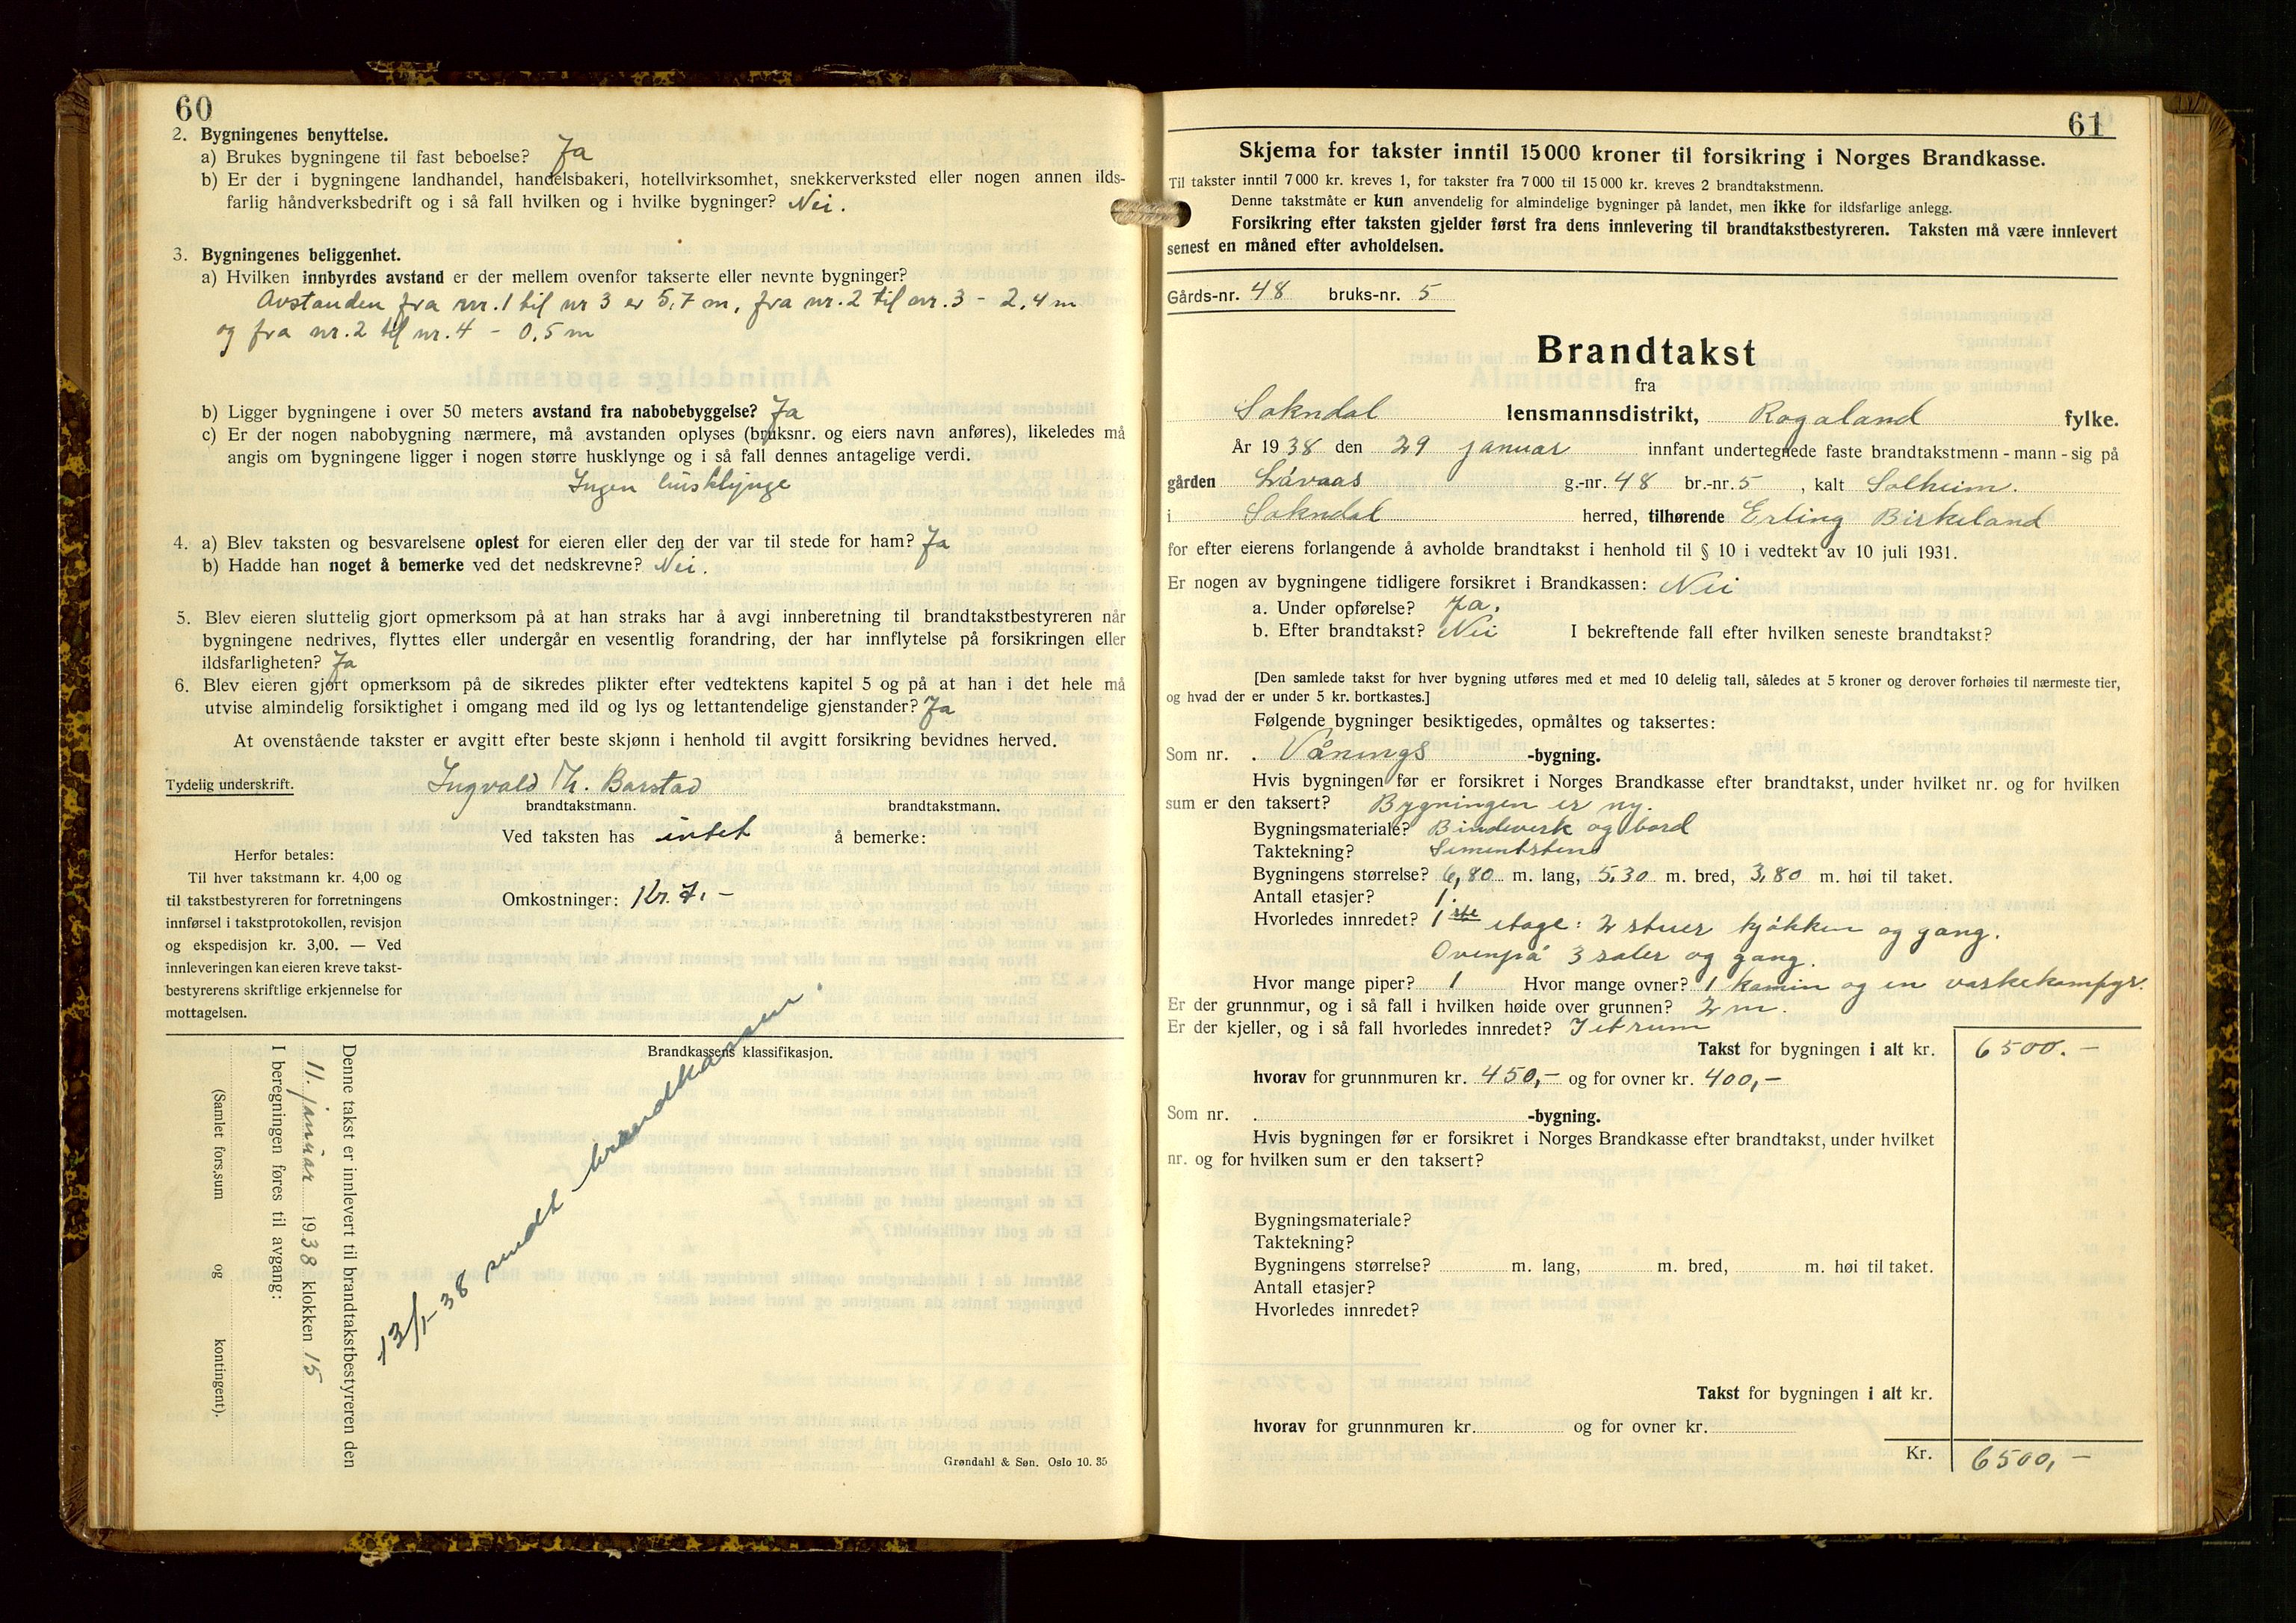 60
2. Bygningenes benyttelse.
a) Brukes bygningene til fast beboelse? Ja
b) Er der i bygningene landhandel, handelsbakeri, hotellvirksomhet, snekkerverksted eller nogen annen ilds-
farlig håndverksbedrift og i så fall hvilken og i hvilke bygninger? Nei.
3. Bygningenes beliggenhet.
a) Hvilken innbyrdes avstand er der mellem ovenfor takserte eller nevnte bygninger?
Avstanden fra nr. 1 til nr 3 er 5,7 m, fra nr. 2 til nr. 3 - 2,4 m
og fra nr. 2 til nr. 4 - 0,5 m
b) Ligger bygningene i over 50 meters avstand fra nabobebyggelse? Ja
c) Er der nogen nabobygning nærmere, må avstanden oplyses (bruksnr. og eiers navn anføres), likeledes må
angis om bygningene ligger i nogen større husklynge og i så fall dennes antagelige verdi.
Ingen husklynge
4. a) Blev taksten og besvarelsene oplest for eieren eller den der var til stede for ham? Ja
b) Hadde han noget å bemerke ved det nedskrevne? Nei.
5. Blev eieren sluttelig gjort opmerksom på at han straks har å avgi innberetning til brandtakstbestyreren når
bygningene nedrives, flyttes eller undergår en vesentlig forandring, der har innflytelse på forsikringen eller
ildsfarligheten? Ja
6. Blev eieren gjort opmerksom på de sikredes plikter efter vedtektens kapitel 5 og på at han i det hele må
utvise almindelig forsiktighet i omgang med ild og lys og lettantendelige gjenstander? Ja
At ovenstående takster er avgitt efter beste skjønn i henhold til avgitt forsikring bevidnes herved.
Tydelig underskrift. Ingvald Th. Barstad
brandtakstmann. brandtakstmann.
Ved taksten has intet å bemerke:
Herfor betales:
Til hver takstmann kr. 4,00 og
til takstbestyreren for forretningens
innførsel i takstprotokollen, revisjon
og ekspedisjon kr. 3,00. — Ved
innleveringen kan eieren kreve takst-
bestyrerens skriftlige erkjennelse for
mottagelsen.
Omkostninger: Kr. 7.-
Brandkassens klassifikasjon.
Denne takst er innlevert til brandtakstbestyreren den
11. januar 1938 klokken 15
I beregningen føres til avgang:
(Samlet fors.sum og kontingent).
13/1-38 sendt brandkassen.
Grøndahl & Søn. Oslo 10. 35
61
Skjema for takster inntil 15000 kroner til forsikring i Norges Brandkasse.
Til takster inntil 7000 kr. kreves 1, for takster fra 7000 til 15000 kr. kreves 2 brandtakstmenn.
Denne takstmåte er kun anvendelig for almindelige bygninger på landet, men ikke for ildsfarlige anlegg.
Forsikring efter taksten gjelder først fra dens innlevering til brandtakstbestyreren. Taksten må være innlevert
senest en måned efter avholdelsen.
Gårds-nr. 48 bruks-nr. 5
Brandtakst
fra
Sokndal lensmannsdistrikt, Rogaland fylke.
År 1938 den 29 januar innfant undertegnede faste brandtakstmenn - mann - sig på
gården Låvaas g.-nr. 48 br.-nr. 5 , kalt Solheim.
i Sokndal herred, tilhørende Erling Birkeland
for efter eierens forlangende å avholde brandtakst i henhold til § 10 i vedtekt av 10 juli 1931.
Er nogen av bygningene tidligere forsikret i Brandkassen: Nei
a. Under opførelse? Ja.
b. Efter brandtakst? Nei I bekreftende fall efter hvilken seneste brandtakst?
[Den samlede takst for hver bygning utføres med et med 10 delelig tall, således at 5 kroner og derover forhøies til nærmeste tier,
og hvad der er under 5 kr. bortkastes.]
Følgende bygninger besiktigedes, opmåltes og taksertes:
Som nr. . Vånings -bygning.
Hvis bygningen før er forsikret i Norges Brandkasse efter brandtakst, under hvilket nr. og for hvilken
sum er den taksert? Bygningen er ny.
Bygningsmateriale? Bindeverk og bord
Taktekning? Sementsten
Bygningens størrelse? 6,80 m. lang, 5,30 m. bred, 3,80 m. høi til taket.
Antall etasjer? 1.
Hvorledes innredet? 1ste etage: 2 stuer kjøkken og gang.
Ovenpå 3 saler og gang.
Hvor mange piper? 1 Hvor mange ovner? 1 kamin og en vaskekomfyr.
Er der grunnmur, og i så fall i hvilken høide over grunnen? 2 m.
Er der kjeller, og i så fall hvorledes innredet? I et rum
Takst for bygningen i alt kr. 6500.-
hvorav for grunnmuren kr. 450,- og for ovner kr. 400,-
Som nr. . -bygning.
Hvis bygningen før er forsikret i Norges Brandkasse efter brandtakst, under hvilket
nr. og for hvilken sum er den taksert?
Bygningsmateriale?
Taktekning?
Bygningens størrelse? m. lang, m. bred, m. høi til taket.
Antall etasjer?
Hvorledes innredet?
Takst for bygningen i alt kr.
hvorav for grunnmuren kr. og for ovner kr.
Kr. 6500,-